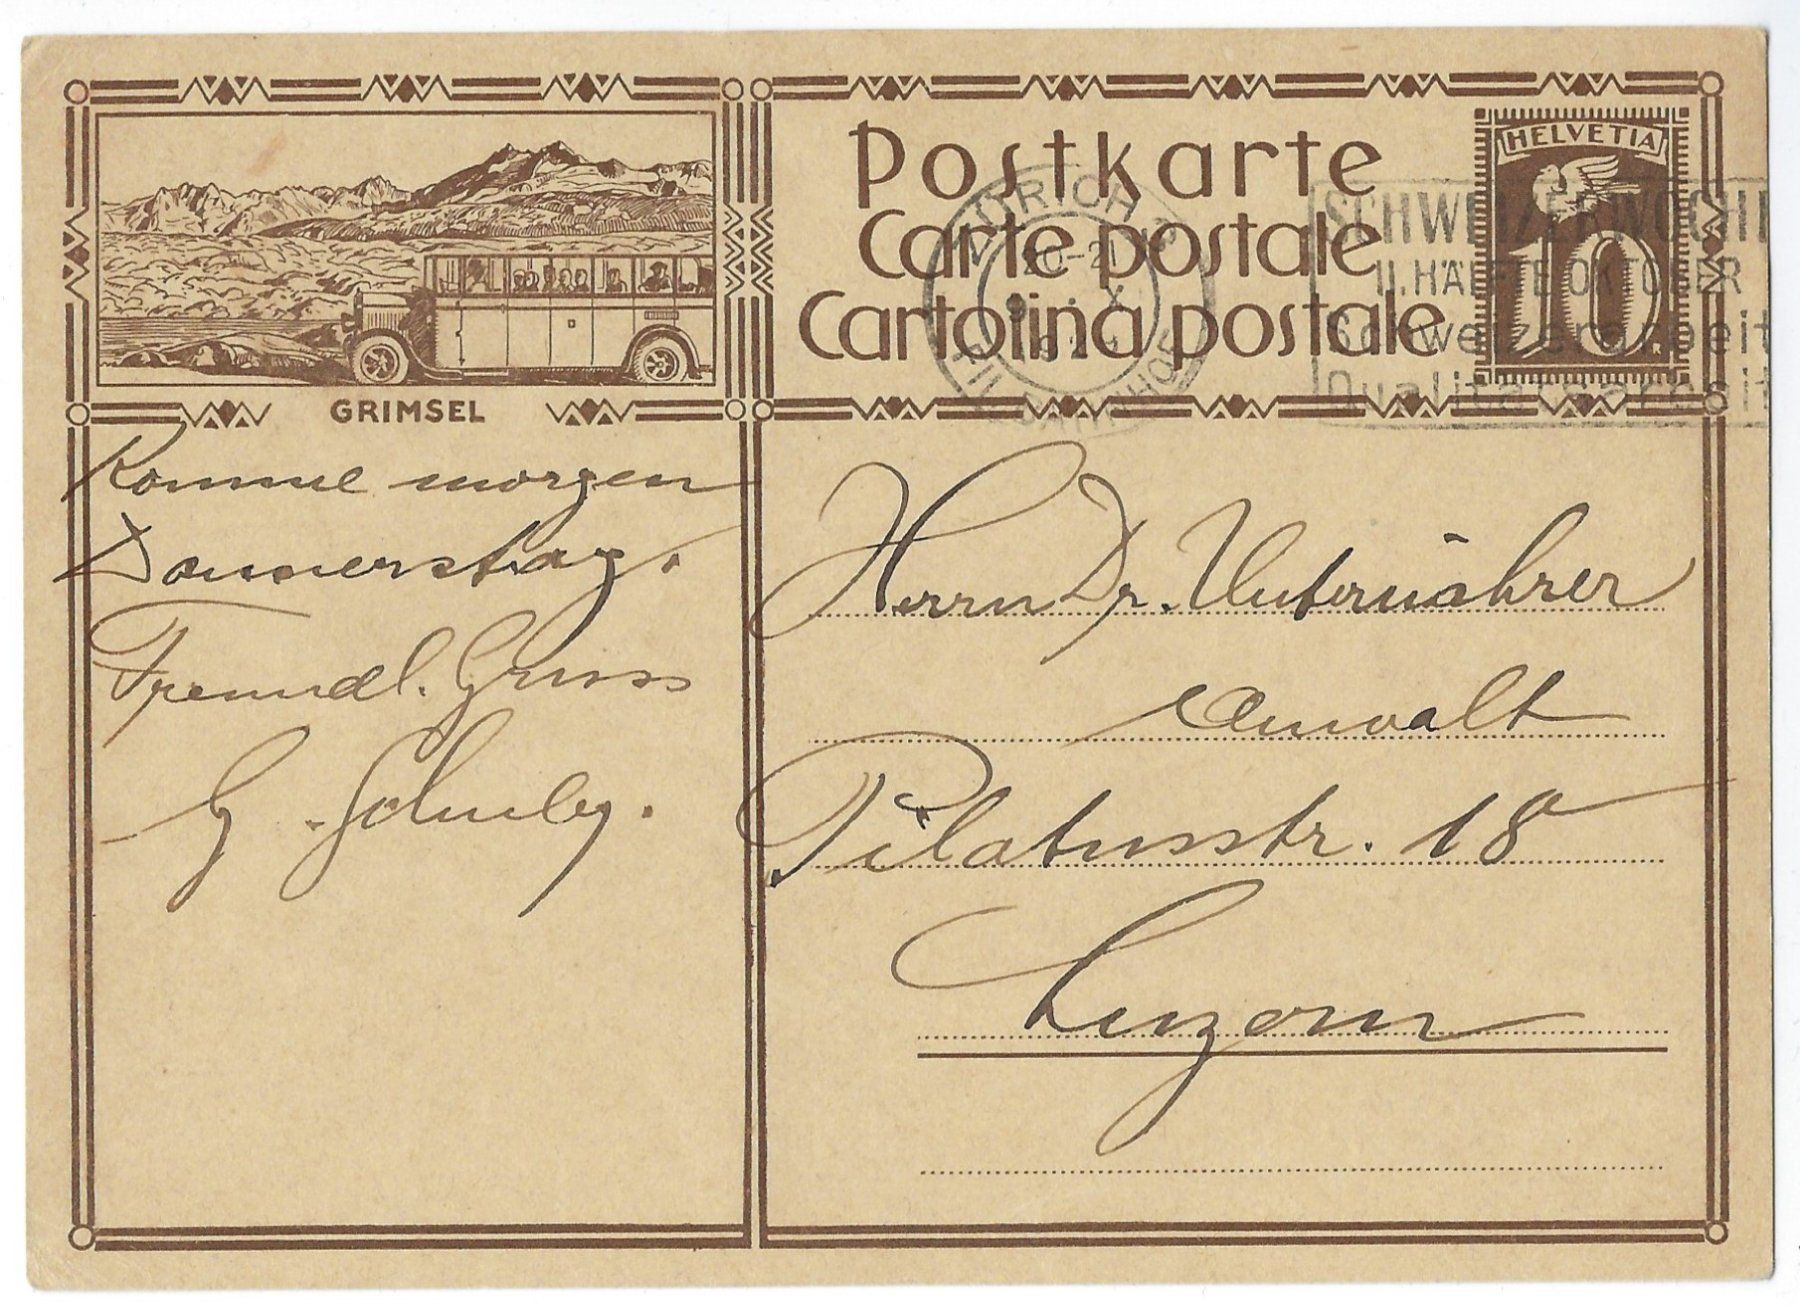 GRIMSEL
Postkarte
Carte postale
Cartolina postale
HELVETIA
10
ZÜRICH
20-21
9. X.
SCHWEIZERWOCHE
II. HÄLFTE OKTOBER
Schweizerarbeit
Qualitätsarbeit
Komme morgen
Donnerstag.
Freundl. Gruss
G.
Herrn Dr. Unternährer
Anwalt
Pilatusstr. 18
Luzern